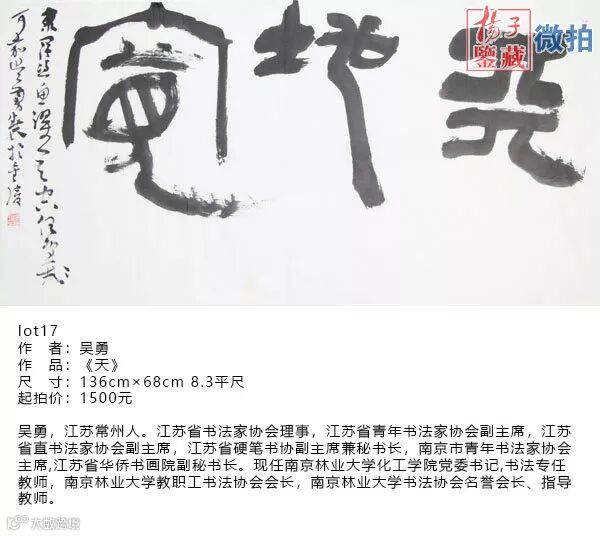 揚子
鑒藏
微拍
天地寬
於金陵
lot17
作 者：吴勇
作 品：《天》
尺 寸：136cm×68cm 8.3平尺
起拍价：1500元
吴勇，江苏常州人。江苏省书法家协会理事，江苏省青年书法家协会副主席，江苏
省直书法家协会副主席，江苏省硬笔书协副主席兼秘书长，南京市青年书法家协会
主席,江苏省华侨书画院副秘书长。现任南京林业大学化工学院党委书记,书法专任
教师，南京林业大学教职工书法协会会长，南京林业大学书法协会名誉会长、指导
教师。
大数跨境